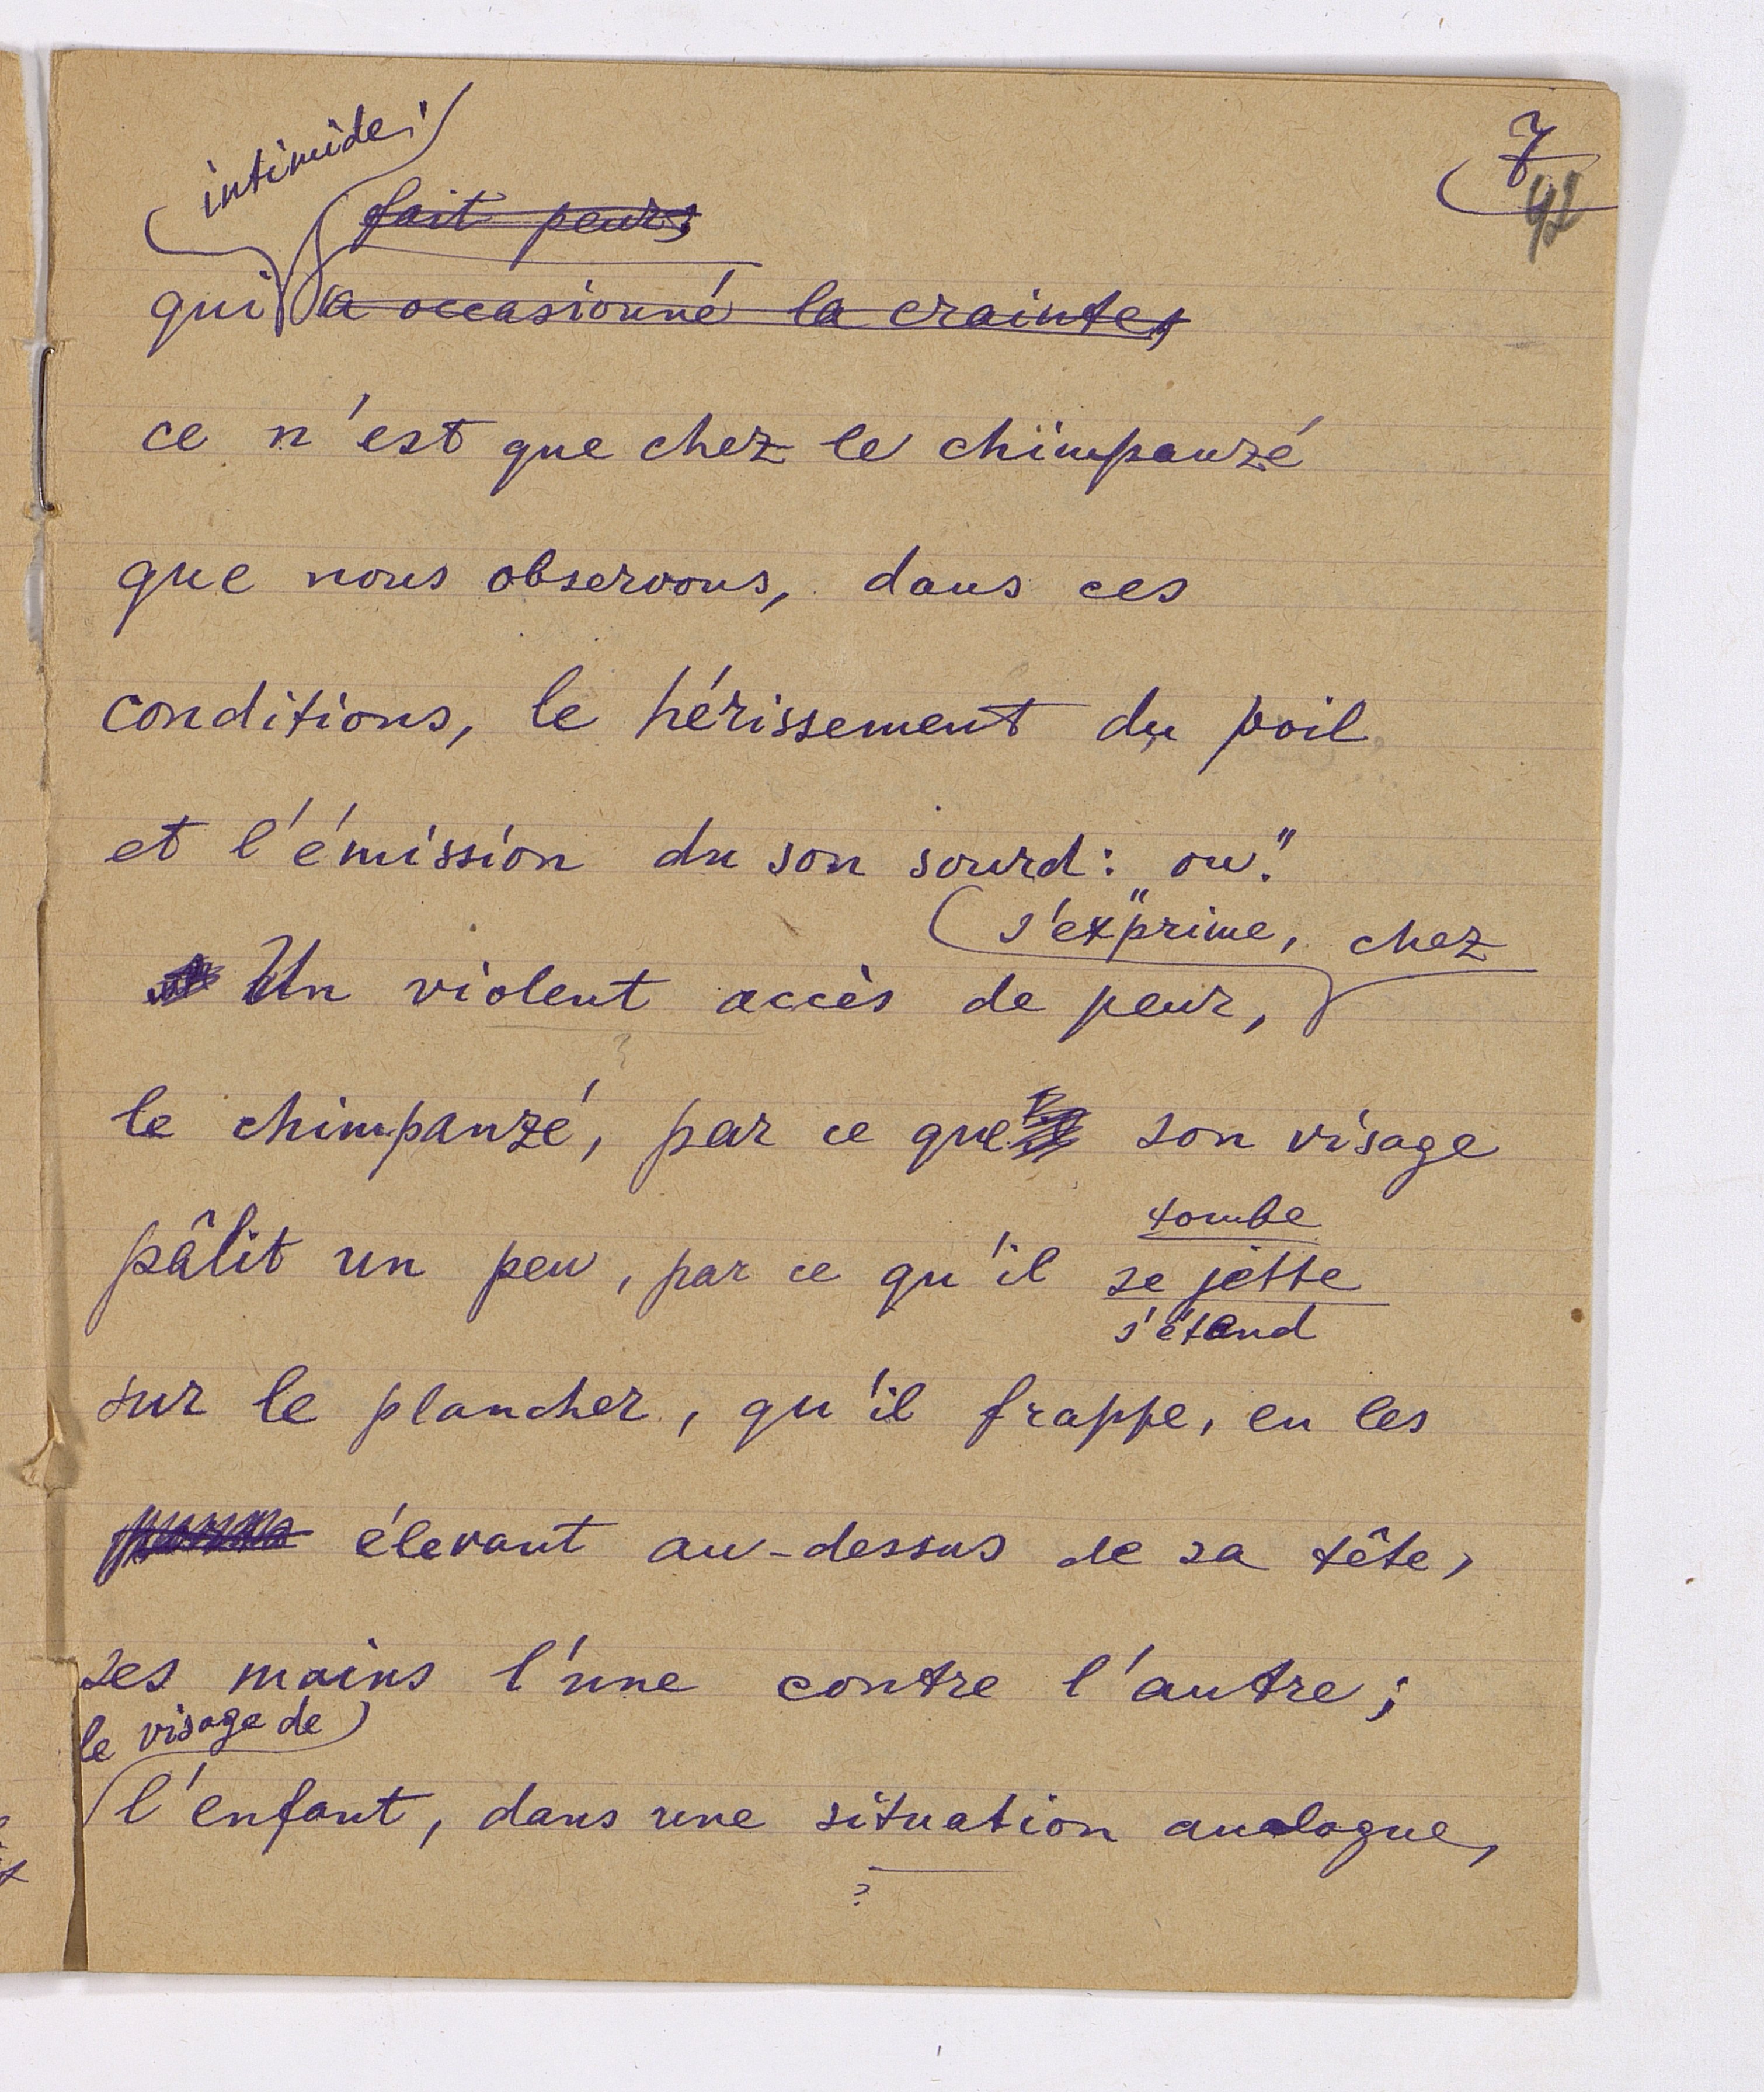 7
42
intimide;
fait peur;
qui a occasionné la crainte,
ce n'est que chez le chimpanzé
que nous observons, dans ces
conditions, le hérissement du poil
et l'émission du son sourd: ou."
s'exprime, chez
Un violent accès de peur,
?
le chimpanzé, par ce que son visage
tombe
pâlit un peu, par ce qu'il se jette
s'étend
sur le plancher, qu'il frappe, en les
élevant au-dessus de sa tête,
ses mains l'une contre l'autre;
le visage de
l'enfant, dans une situation analogue,
?